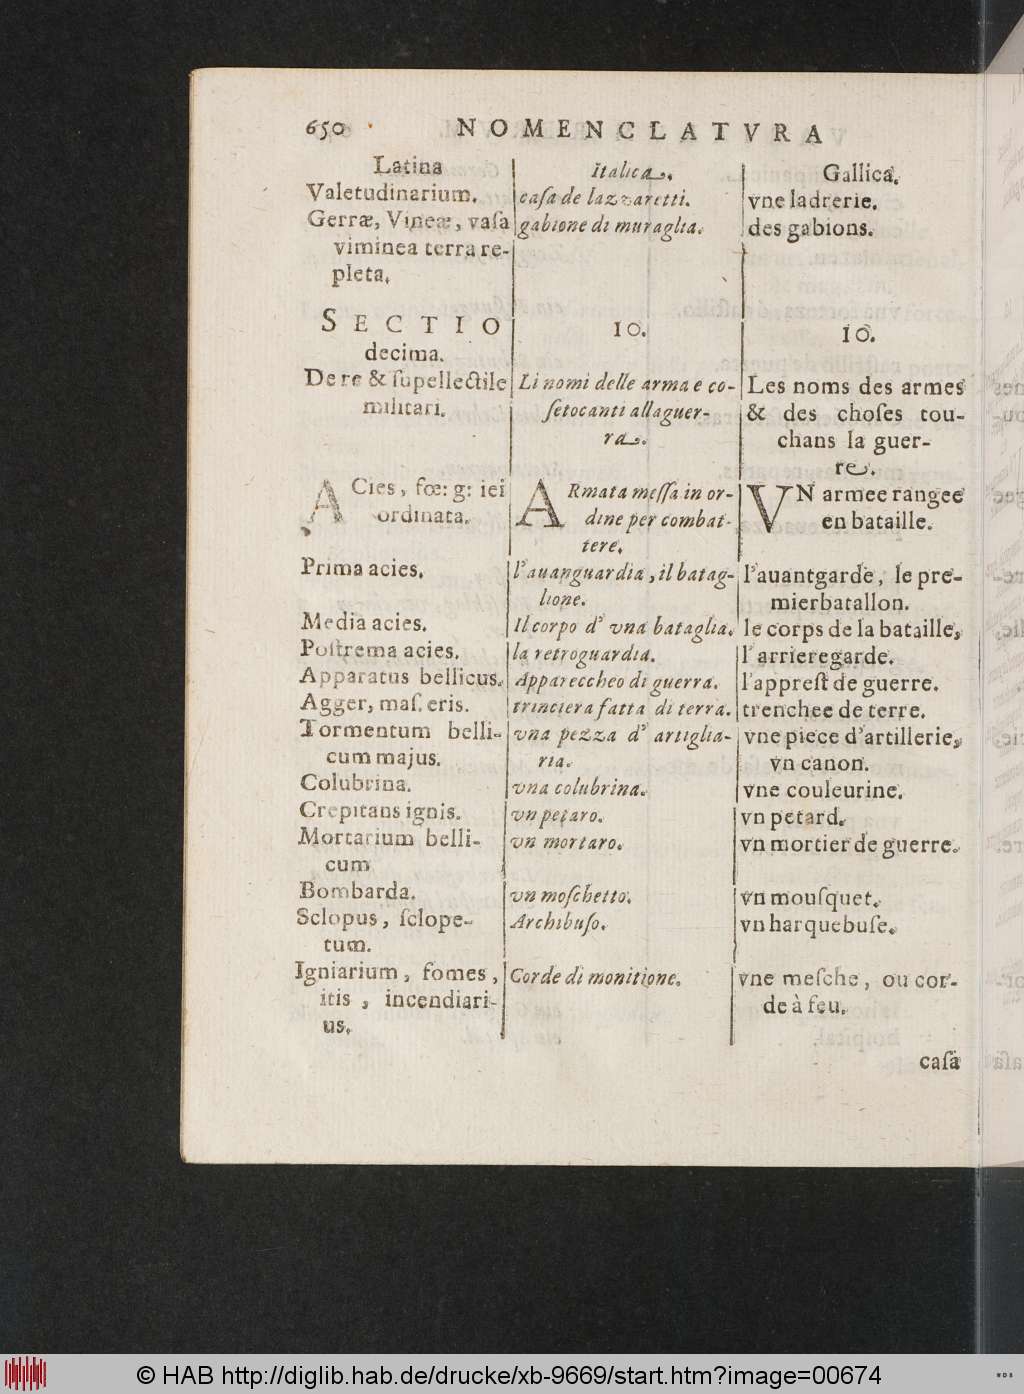 650 NOMENCLATVRA
Latina
Valetudinarium.
Gerræ, Vineæ, vaſa
viminea terra re-
pleta.
SECTIO
decima.
De re & ſupellectile
militari.
ACies, fœ: g: iei
ordinata.
Prima acies.
Media acies.
Poſtrema acies.
Apparatus bellicus.
Agger, maſ. eris.
Tormentum belli-
cum majus.
Colubrina.
Crepitans ignis.
Mortarium belli-
cum
Bombarda.
Sclopus, ſclope-
tum.
Igniarium, fomes,
itis, incendiari-
us.
Italica.
caſa de lazzaretti.
gabione di muraglia.
10.
Li nomi delle arma e co-
ſetocanti alla guer-
ra.
ARmata meſſa in or-
dine per combat-
tere.
l'auanguardia, il batag-
lione.
Il corpo d' vna bataglia.
la retroguardia.
Appareccheo di guerra.
trinciera fatta di terra.
vna pezza d' artiglia-
ria.
vna colubrina.
vn petaro.
vn mortaro.
vn moſchetto.
Archibuſo.
Corde di monitione.
Gallica.
vne ladrerie.
des gabions.
10.
Les noms des armes
& des choſes tou-
chans la guer-
re.
VN armee rangee
en bataille.
l'auantgarde, le pre-
mier batallon.
le corps de la bataille,
l' arrieregarde.
l'appreſt de guerre.
trenchee de terre.
vne piece d'artillerie,
vn canon.
vne couleurine.
vn petard.
vn mortier de guerre.
vn mouſquet.
vn harquebuſe.
vne meſche, ou cor-
de à feu.
caſa
© HAB http://diglib.hab.de/drucke/xb-9669/start.htm?image=00674